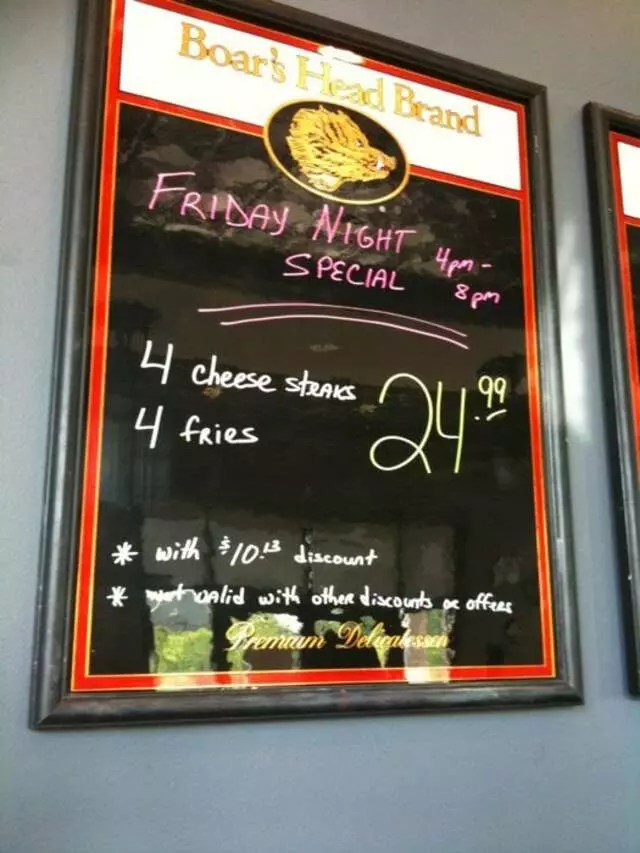 Boar's Head Brand
FRIDAY NIGHT 4pm -
SPECIAL 8pm
4 cheese steaks
4 fries
24.99
* with $10.13 discount
* not valid with other discounts or offers
Premium Delicatessen